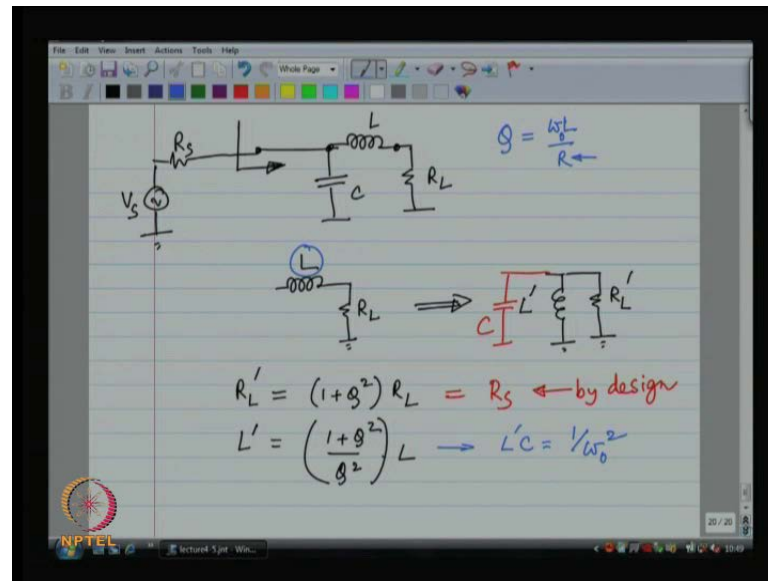 File Edit View Insert Actions Tools Help
Whole Page
B I
L
R_S
Q = ω₀L / R ←
V_S
C
R_L
L
R_L ⟹ C L' R_L'
R_L' = (1+Q²) R_L = R_S ← by design
L' = ((1+Q²)/Q²) L → L'C = 1/ω₀²
20 / 20
NPTEL
lecture4-5.jnt - Win...
10:49